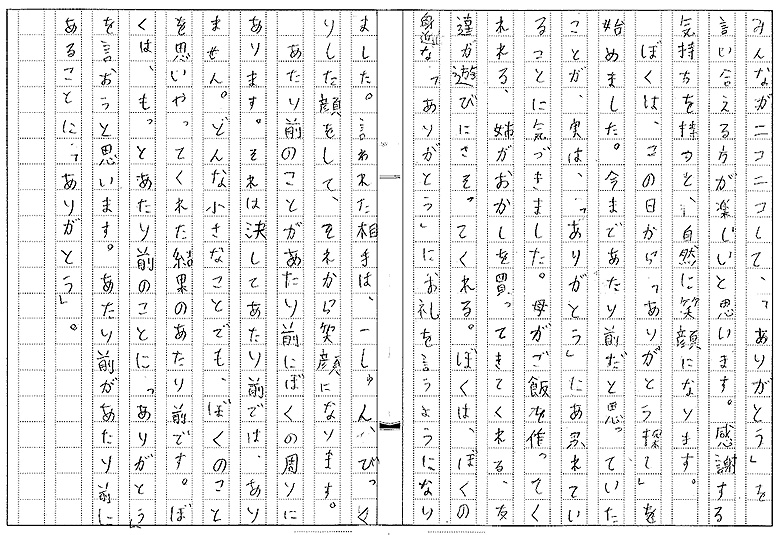 みんながニコニコして、「ありがとう」を
言い合える方が楽しいと思います。感謝する
気持ちを持つと、自然に笑顔になります。
ぼくは、この日から「ありがとう探し」を
始めました。今まであたり前だと思っていた
ことが、実は、「ありがとう」にあふれてい
ることに気づきました。母がご飯を作ってく
れる、姉がおかしを買ってきてくれる、友
達が遊びにさそってくれる。ぼくは、ぼくの
身近な「ありがとう」にお礼を言うようになり
ました。言われた相手は、一しゅん、びっく
りした顔をして、それから笑顔になります。
あたり前のことがあたり前にぼくの周りに
あります。それは決してあたり前では、あり
ません。どんな小さなことでも、ぼくのこと
を思いやってくれた結果のあたり前です。ぼ
くは、もっとあたり前のことに「ありがとう」
を言おうと思います。あたり前があたり前に
あることに「ありがとう」。